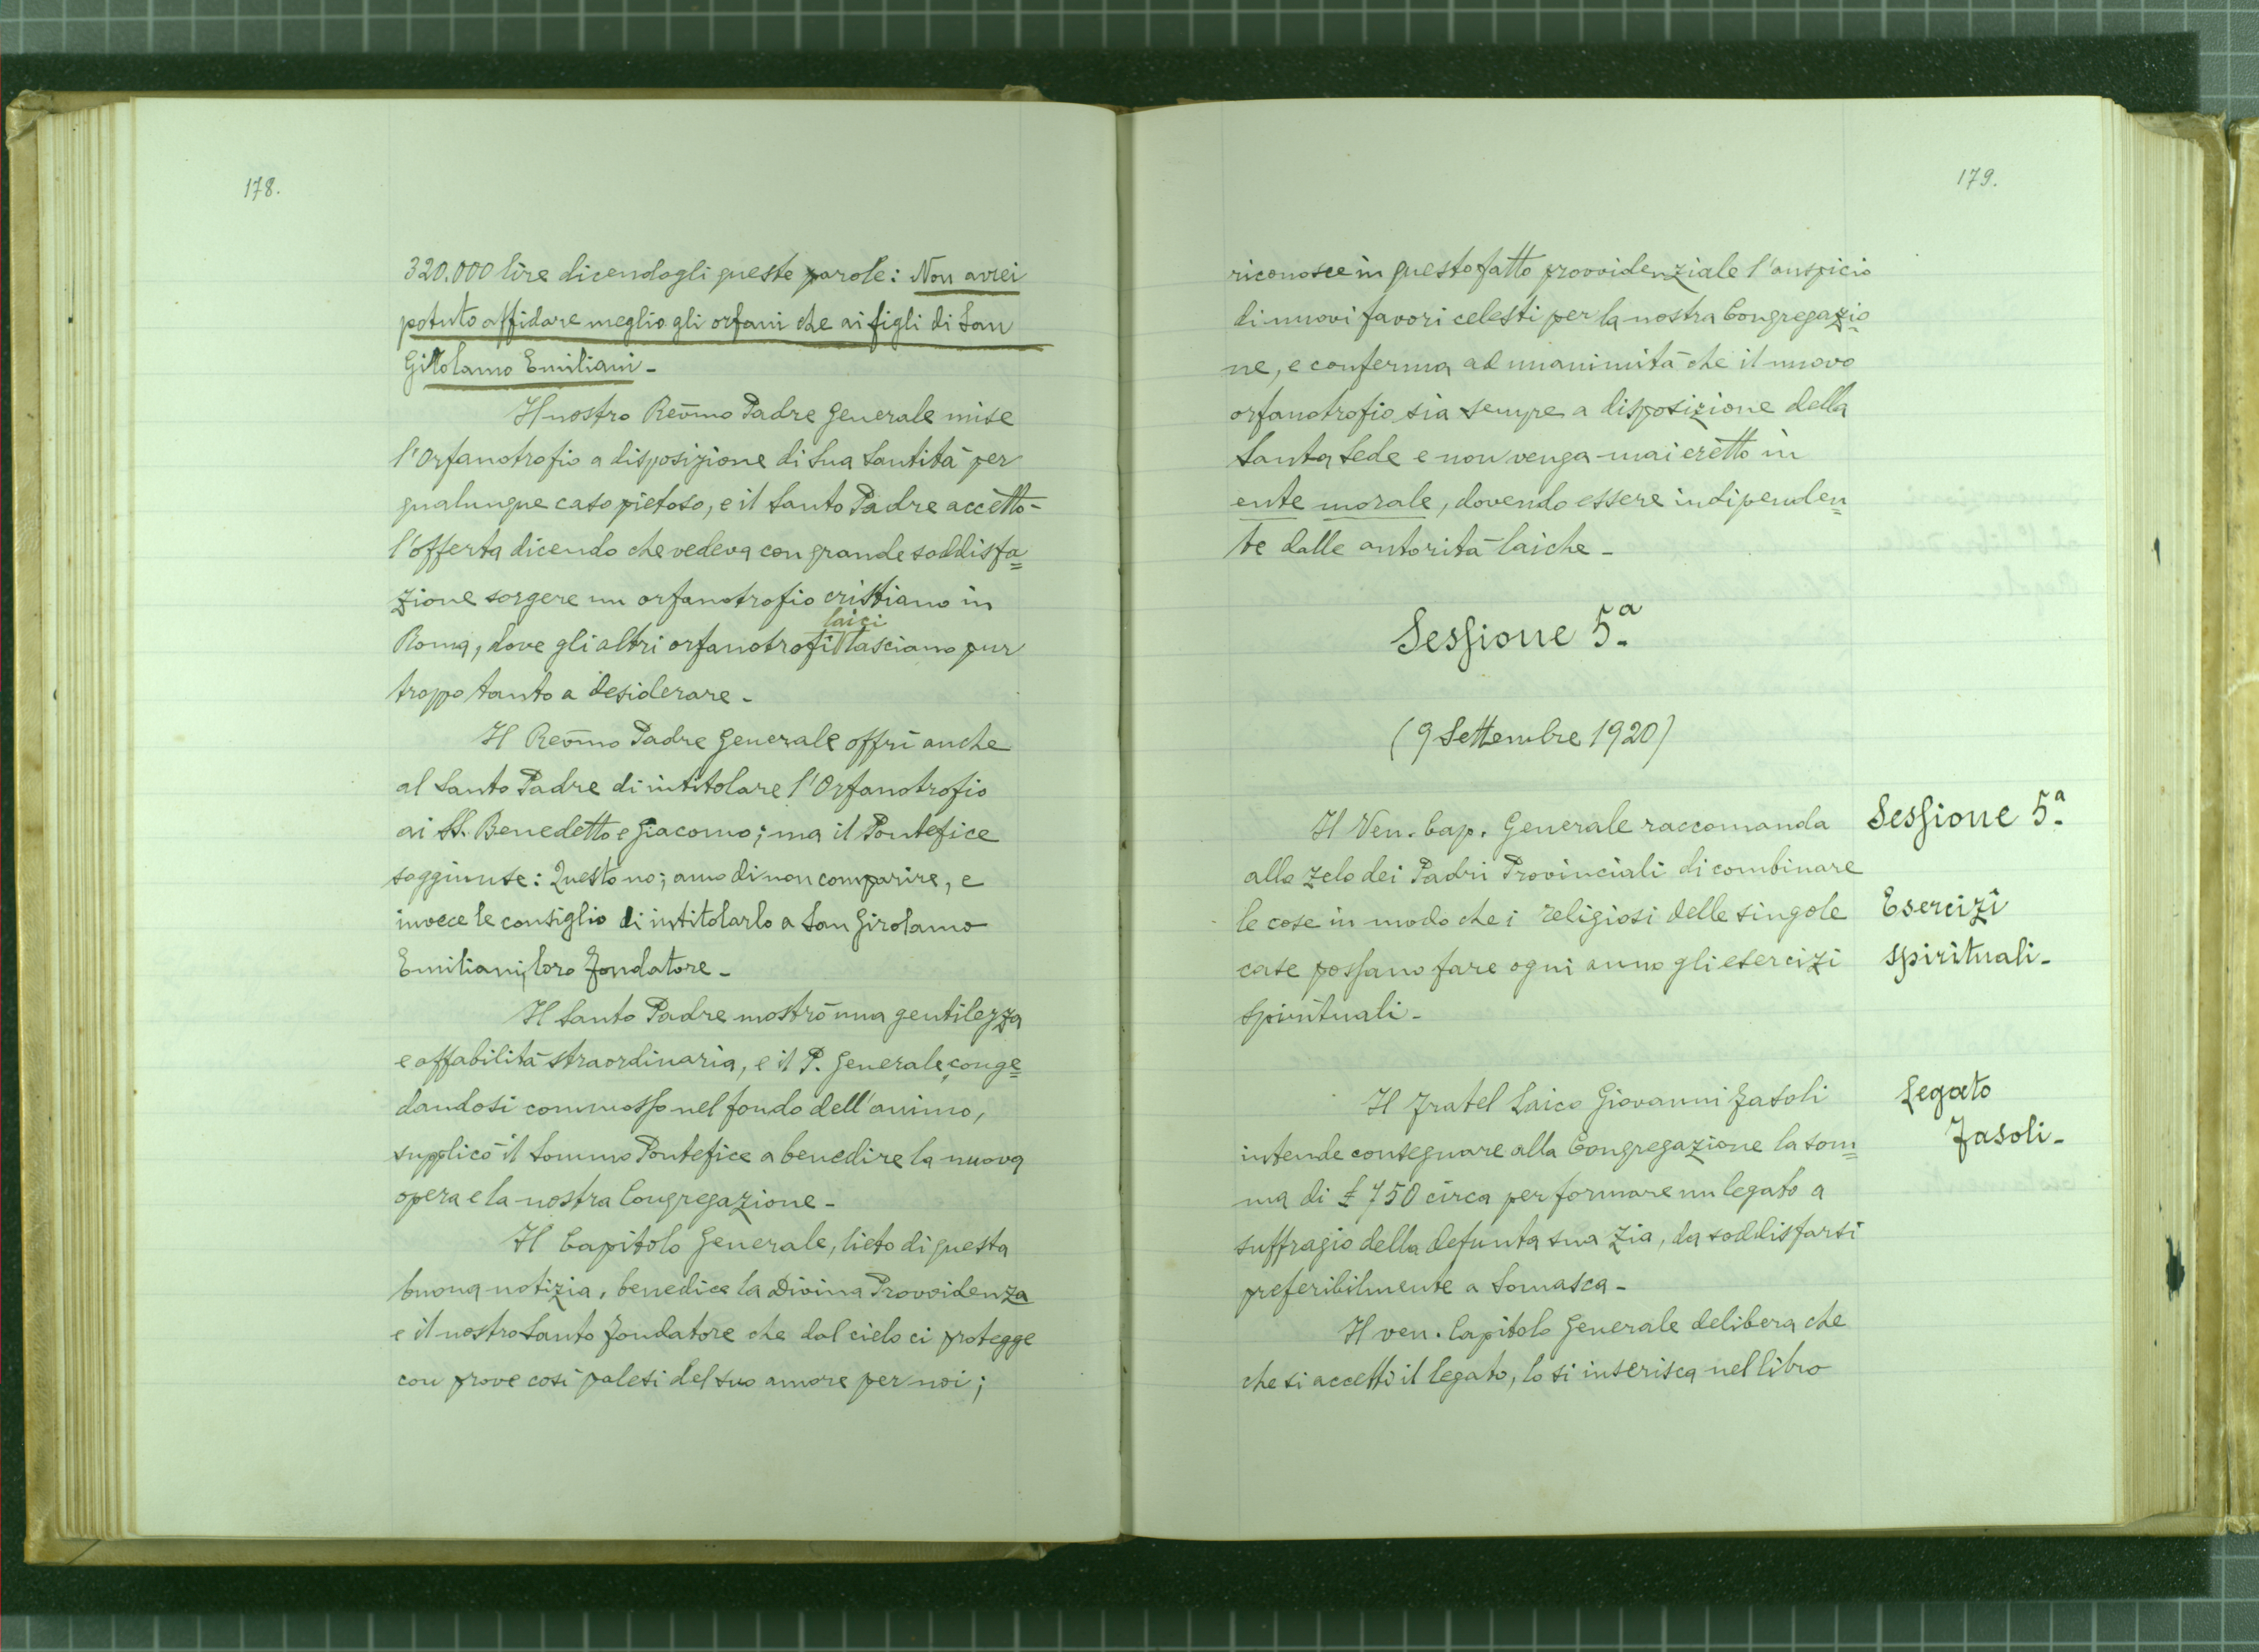 178.
320.000 lire dicendogli queste parole: Non avrei
potuto affidare meglio gli orfani che ai figli di San
Girolamo Emiliani -
Il nostro Rev̄mo Padre Generale mise
l'Orfanotrofio a disposizione di Sua Santità per
qualunque caso pietoso, e il Santo Padre accettò
l'offerta dicendo che vedeva con grande soddisfa=
zione sorgere un orfanotrofio cristiano in
laici
Roma, dove gli altri orfanotrofi lasciano pur
troppo tanto a desiderare -
Il Rev̄mo Padre Generale offrì anche
al Santo Padre di intitolare l'Orfanotrofio
ai SS. Benedetto e Giacomo; ma il Pontefice
soggiunse: Questo no; amo di non comparire, e
invece le consiglio di intitolarlo a San Girolamo
Emiliani, loro Fondatore -
Il Santo Padre mostrò una gentilezza
e affabilità straordinaria, e il P. Generale, conge=
dandosi commosso nel fondo dell'animo,
supplicò il Sommo Pontefice a benedire la nuova
opera e la nostra Congregazione -
Il Capitolo Generale, lieto di questa
buona notizia, benedice la Divina Provvidenza
e il nostro Santo Fondatore che dal cielo ci protegge
con prove così palesi del suo amore per noi;
179.
riconosce in questo fatto provvidenziale l'auspicio
di nuovi favori celesti per la nostra Congregazio=
ne, e conferma ad unanimità che il nuovo
orfanotrofio sia sempre a disposizione della
Santa Sede e non venga mai eretto in
ente morale, dovendo essere indipenden=
te dalle autorità laiche -
Sessione 5.a
(9 Settembre 1920)
Il Ven. Cap. Generale raccomanda
allo zelo dei Padri Provinciali di combinare
le cose in modo che i religiosi delle singole
case possano fare ogni anno gli esercizi
spirituali -
Sessione 5.a
Esercizi
spirituali -
Il Fratel Laico Giovanni Fasoli
intende consegnare alla Congregazione la som=
ma di £ 750 circa per formare un legato a
suffragio della defunta sua zia, da soddisfarsi
preferibilmente a Somasca -
Legato
Fasoli -
Il ven. Capitolo Generale delibera che
che si accetti il legato, lo si inserisca nel libro